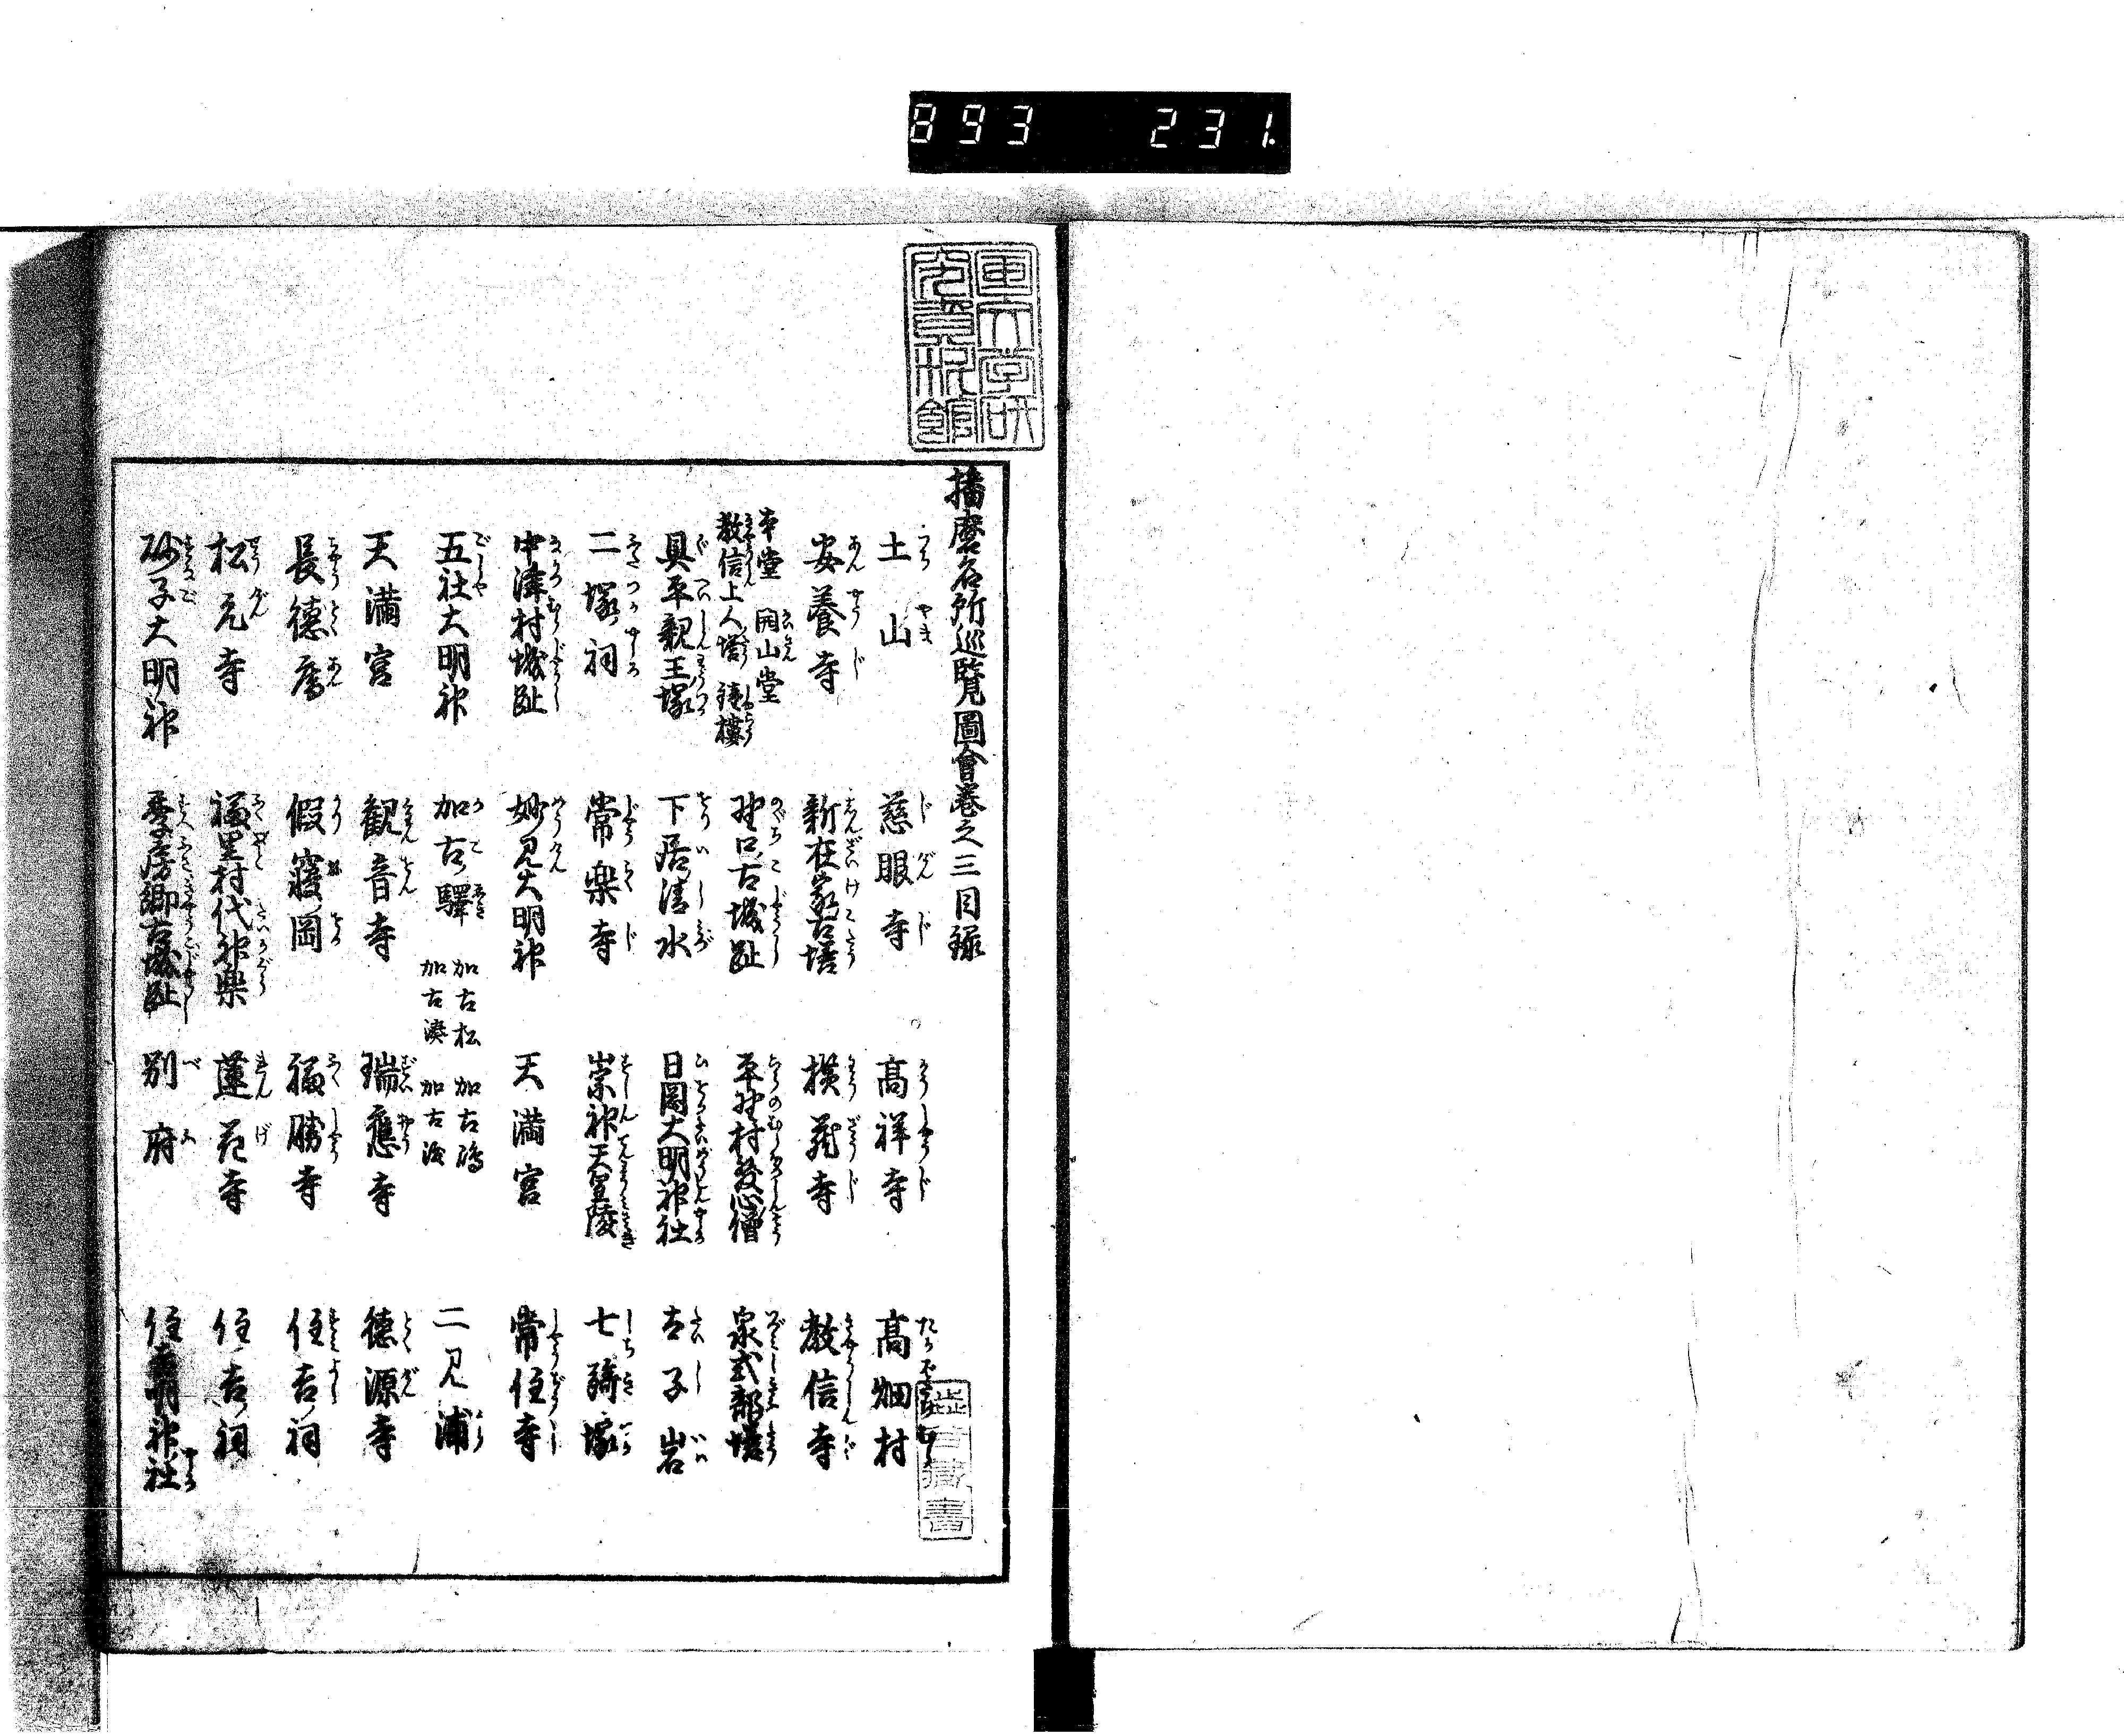 893 231.
播磨名所巡覧圖會巻之三目録
土山 慈眼寺 高祥寺 高畑村
安養寺 新在家古塔 横蔵寺 教信寺
本堂 開山堂
教信上人塔 鐘樓
野口古城趾 平野村發心僧 泉式部塔
具平親王塚 下居清水 日岡大明神社 太子岩
二塚祠 常楽寺 崇神天皇陵 七騎塚
中津村城趾 妙見大明神 天満宮 常住寺
五社大明神 加古驛
加古松 加古嶋
加古湊 加古渡
二見浦
天満宮 観音寺 瑞應寺 徳源寺
長徳庵 假寝岡 福勝寺 住吉祠
松元寺 福里村代神楽 蓮花寺 住吉祠
砂子大明神 季房卿古城趾 別府 住吉明神社
藏書